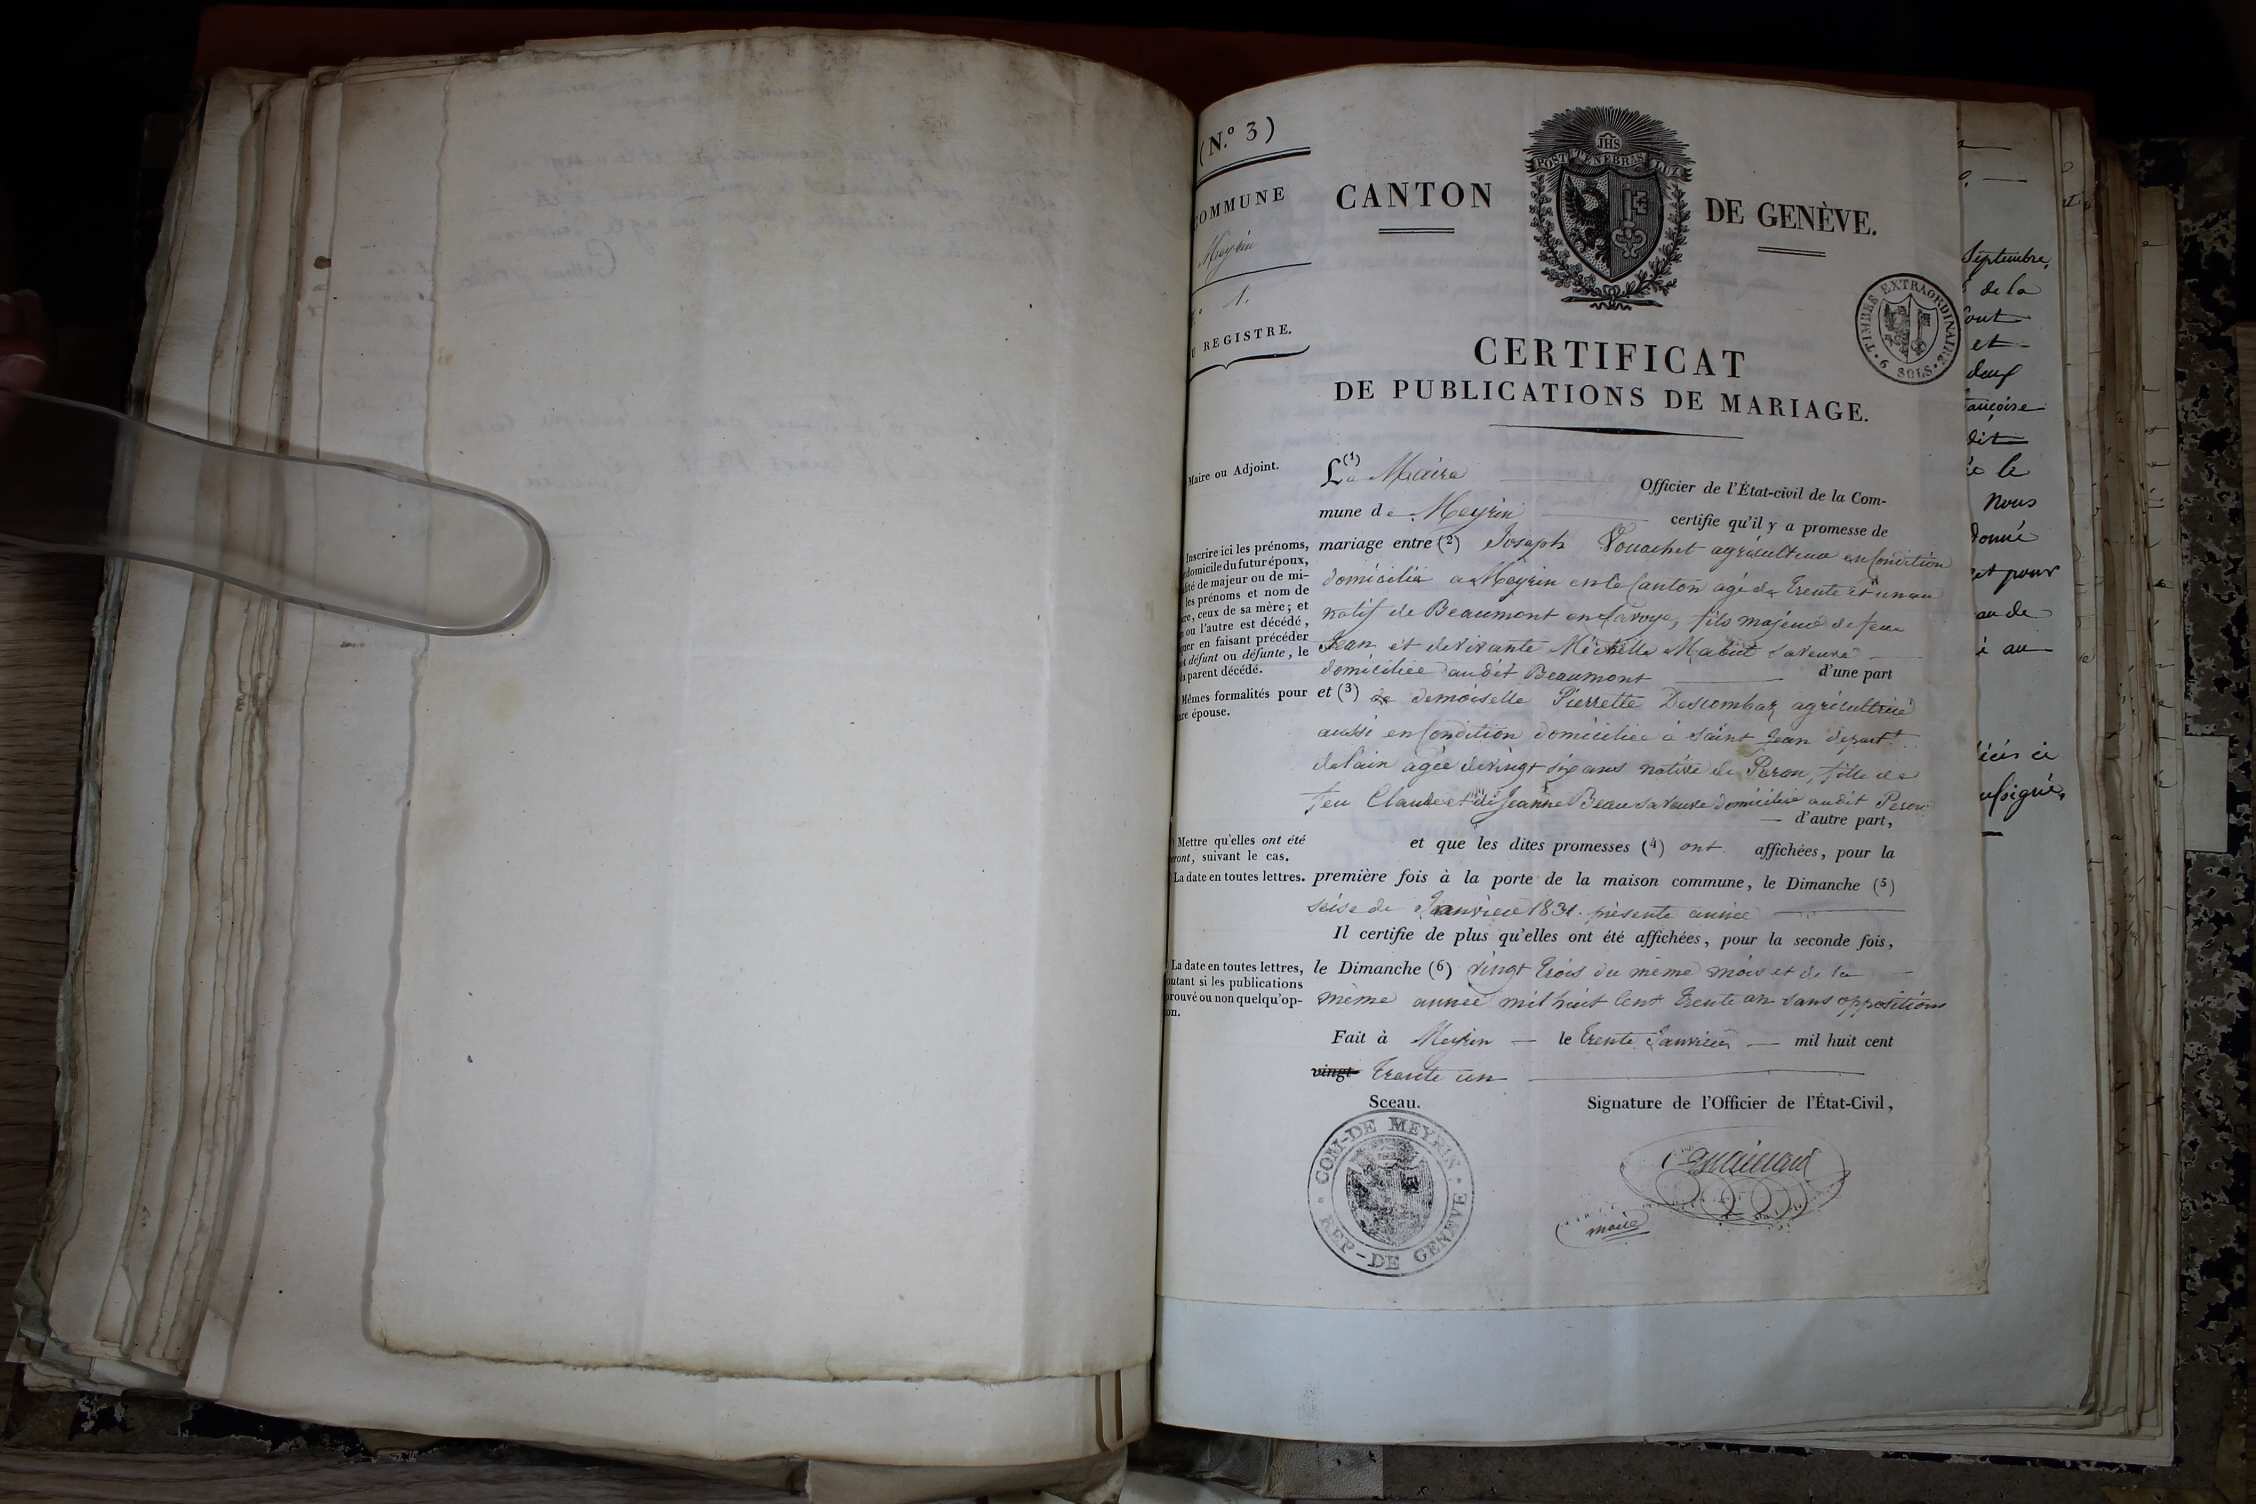 (N.º 3)
COMMUNE
Meyrin
1.
REGISTRE.
CANTON
DE GENÈVE.
JHS
POST TENEBRES LUX
TIMBRES EXTRAORDINAIRE
6 SOLS
CERTIFICAT
DE PUBLICATIONS DE MARIAGE.
Maire ou Adjoint.
Le (1) Maire Officier de l'État-civil de la Com-
mune de Meyrin certifie qu'il y a promesse de
mariage entre (2) Joseph Vouachet agriculteur en Condition
domicilié a Meyrin en ce Canton agé de trente et un an
natif de Beaumont en Savoye, fils majeur de feu
Jean et de vivante Michelle Mabut sa veuve
domiciliée audit Beaumont d'une part
et (3) demoiselle Pierrette Descombaz agricultrice
aussi en Condition domiciliée à Saint Jean depart.t
de l'ain agée de vingt six ans native de Peron, fille de
feu Claude et de Jeanne Beau sa veuve domiciliée audit Peron
d'autre part,
et que les dites promesses (4) ont affichées, pour la
première fois à la porte de la maison commune, le Dimanche (5)
seise de Janvier 1831. présente année
Il certifie de plus qu'elles ont été affichées, pour la seconde fois,
le Dimanche (6) vingt trois du même mois et de la
même année mil huit cent trente un sans oppositions
Fait à Meyrin le trente Janvier mil huit cent
vingt trente un
Sceau.
Signature de l'Officier de l'État-Civil,
maire
COM-DE MEYRIN
REP-DE GENEVE
Inscrire ici les prénoms,
domicile du futur époux,
de majeur ou de mi-
les prénoms et nom de
ceux de sa mère; et
ou l'autre est décédé,
en faisant précéder
défunt ou défunte, le
parent décédé.
Mêmes formalités pour
épouse.
Mettre qu'elles ont été
suivant le cas.
La date en toutes lettres.
La date en toutes lettres,
si les publications
ou non quelqu'op-
Septembre,
de la
et
deux
dit
le
Nous
donné
et pour
au de
au